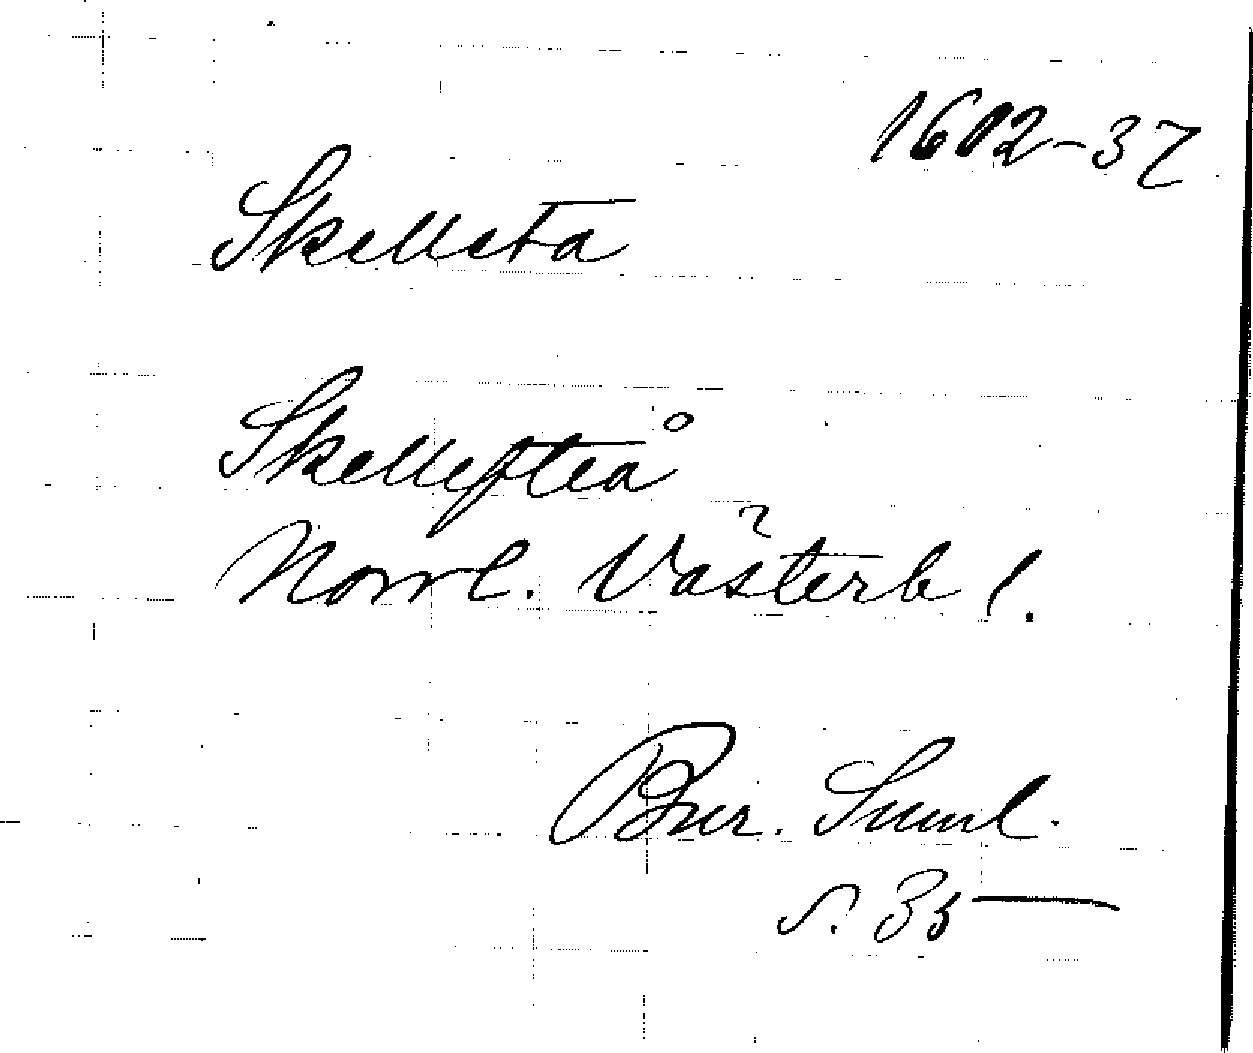 1602-37
Skelleta
Skellefteå
Norrl. Västerb l.
Bur. Suml.
s. 35